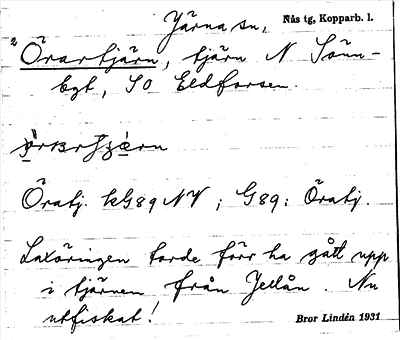 Järna sn, Nås tg, Kopparb. l.
Örartjärn, tjärn N Sönn-
byt, SO Eldforsen.
Öratj. kG89 NV ; G89: Öratj.
Laxöringen torde förr ha gått upp
i tjärnen från Jeÿån. Nu
utfiskat!
Bror Lindén 1931